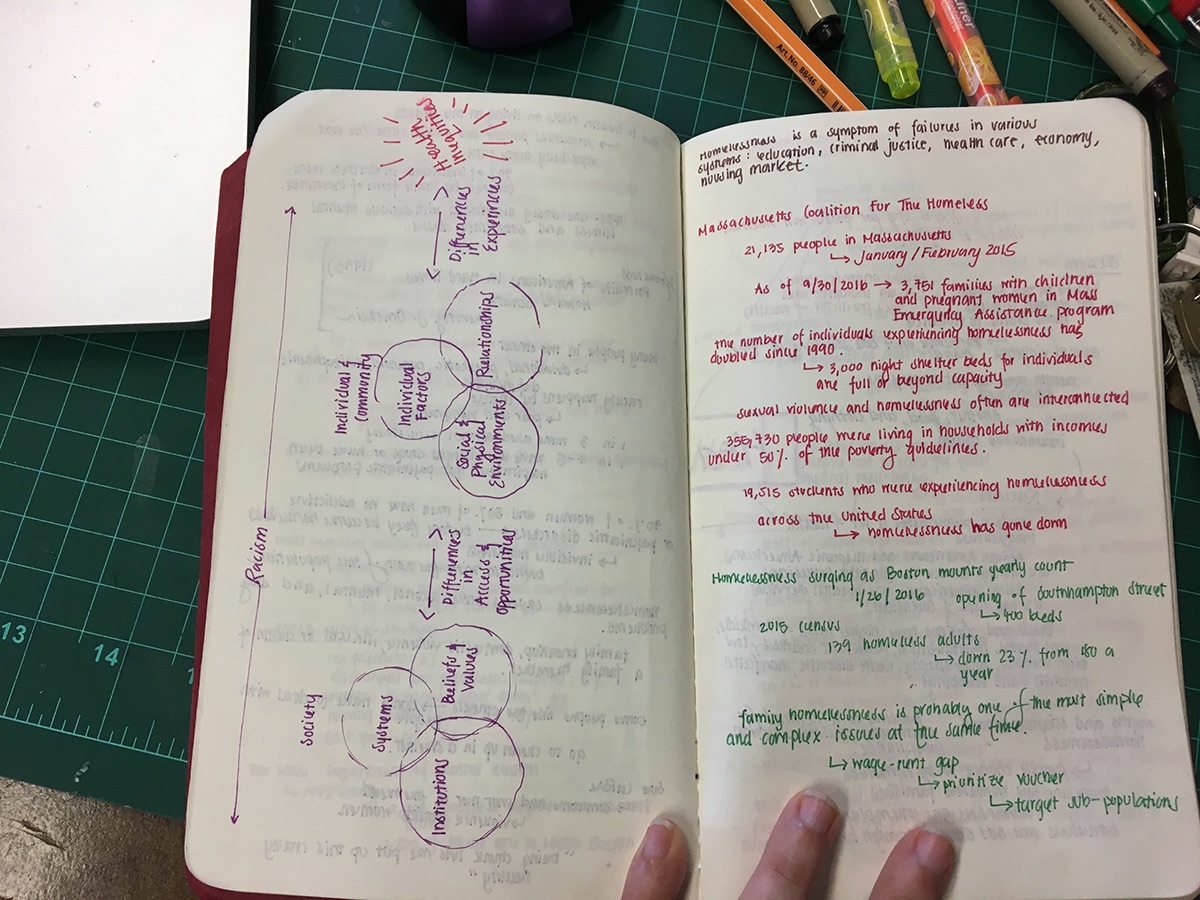 Health
Inequities
Differences
in
Experiences
Relationships
Individual &
Community
Individual
Factors
Social &
Physical
Environments
Racism
Differences
in
Access &
Opportunities
Society
Systems
Beliefs &
Values
Institutions
Homelessness is a symptom of failures in various
systems: education, criminal justice, health care, economy,
housing market.
Massachusetts Coalition for The Homeless
21,135 people in Massachusetts
↳ January / February 2015
As of 9/30/2016 → 3,751 families with children
and pregnant women in Mass
Emergency Assistance program
the number of individuals experiencing homelessness has
doubled since 1990.
↳ 3,000 night shelter beds for individuals
are full or beyond capacity
sexual violence and homelessness often are interconnected
355,730 people were living in households with incomes
under 50% of the poverty guidelines.
19,515 students who were experiencing homelessness
across the United States
↳ homelessness has gone down
Homelessness surging as Boston mounts yearly count
1/26/2016 opening of Southhampton Street
↳ 400 beds
2015 census
139 homeless adults
↳ down 23% from 180 a
year
family homelessness is probably one of the most simple
and complex issues at the same time.
↳ wage-rent gap
↳ prioritize voucher
↳ target sub-populations
Art. No. 88/46
13
14